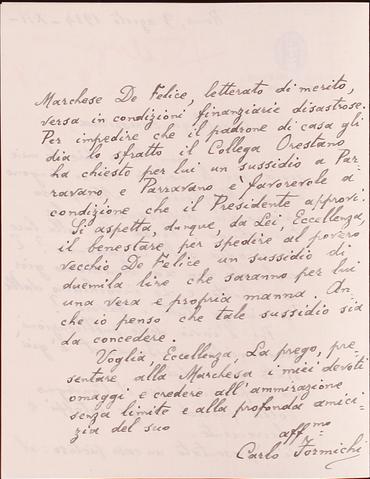 Marchese De Felice, letterato di merito,
versa in condizioni finanziarie disastrose.
Per impedire che il padrone di casa gli
dia lo sfratto il Collega Orestano
ha chiesto per lui un sussidio a Par-
ravano, e Parravano è favorevole a
condizione che il Presidente approvi.
Si aspetta, dunque, da Lei, Eccellenza,
il benestare per spedire al povero
vecchio De Felice un sussidio di
duemila lire che saranno per lui
una vera e propria manna. An-
che io penso che tale sussidio sia
da concedere.
Voglia, Eccellenza, La prego, pre-
sentare alla Marchesa i miei devoti
omaggi e credere all'ammirazione
senza limite e alla profonda amici-
zia del suo
aff.mo
Carlo Formichi